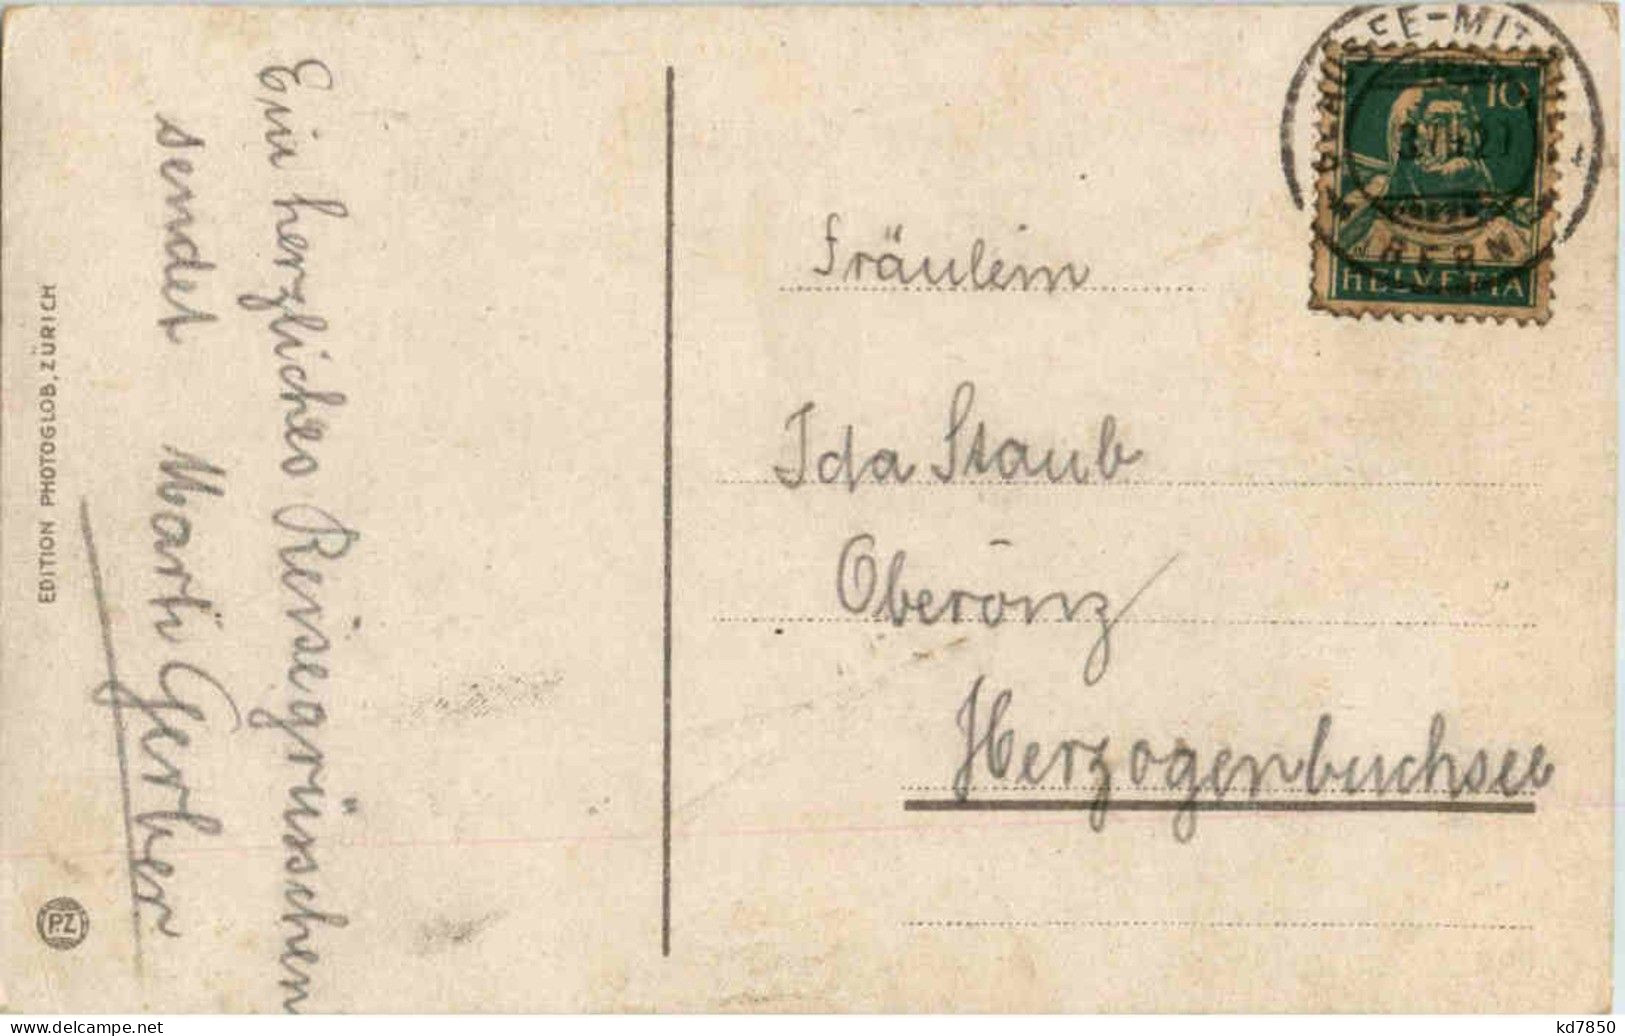 Ein herzliches Reisegrüsschen
sendet Marti Gerber
EDITION PHOTOGLOB, ZÜRICH
PZ
10
HELVETIA
BERN
Fräulein
Ida Staub
Oberönz
Herzogenbuchsee
kd7850